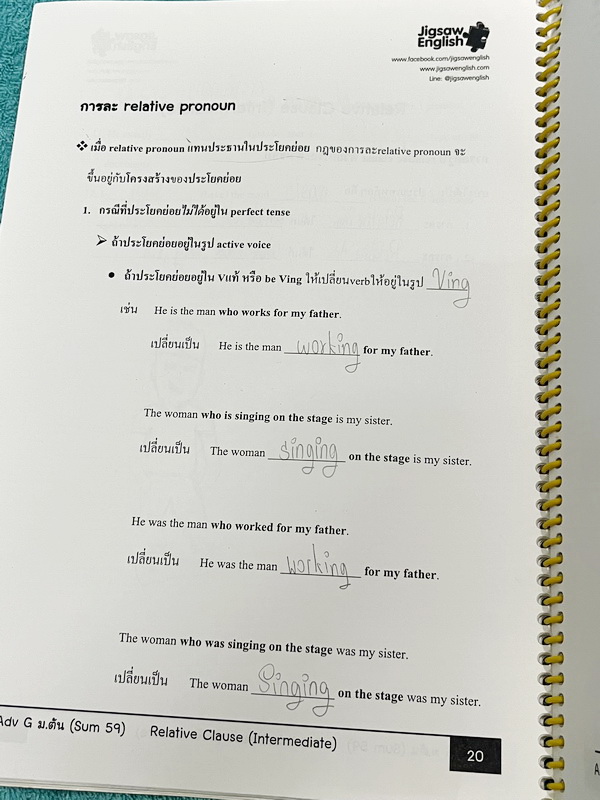 Jigsaw
English
www.facebook.com/jigsawenglish
www.jigsawenglish.com
Line: @jigsawenglish
การละ relative pronoun
❖ เมื่อ relative pronoun แทนประธานในประโยคย่อย กฎของการละrelative pronoun จะ
ขึ้นอยู่กับโครงสร้างของประโยคย่อย
1. กรณีที่ประโยคย่อยไม่ได้อยู่ใน perfect tense
➢ ถ้าประโยคย่อยอยู่ในรูป active voice
● ถ้าประโยคย่อยอยู่ใน Vแท้ หรือ be Ving ให้เปลี่ยนverbให้อยู่ในรูป Ving
เช่น He is the man who works for my father.
เปลี่ยนเป็น He is the man working for my father.
The woman who is singing on the stage is my sister.
เปลี่ยนเป็น The woman singing on the stage is my sister.
He was the man who worked for my father.
เปลี่ยนเป็น He was the man working for my father.
The woman who was singing on the stage was my sister.
เปลี่ยนเป็น The woman Singing on the stage was my sister.
Adv G ม.ต้น (Sum 59) Relative Clause (Intermediate) 20